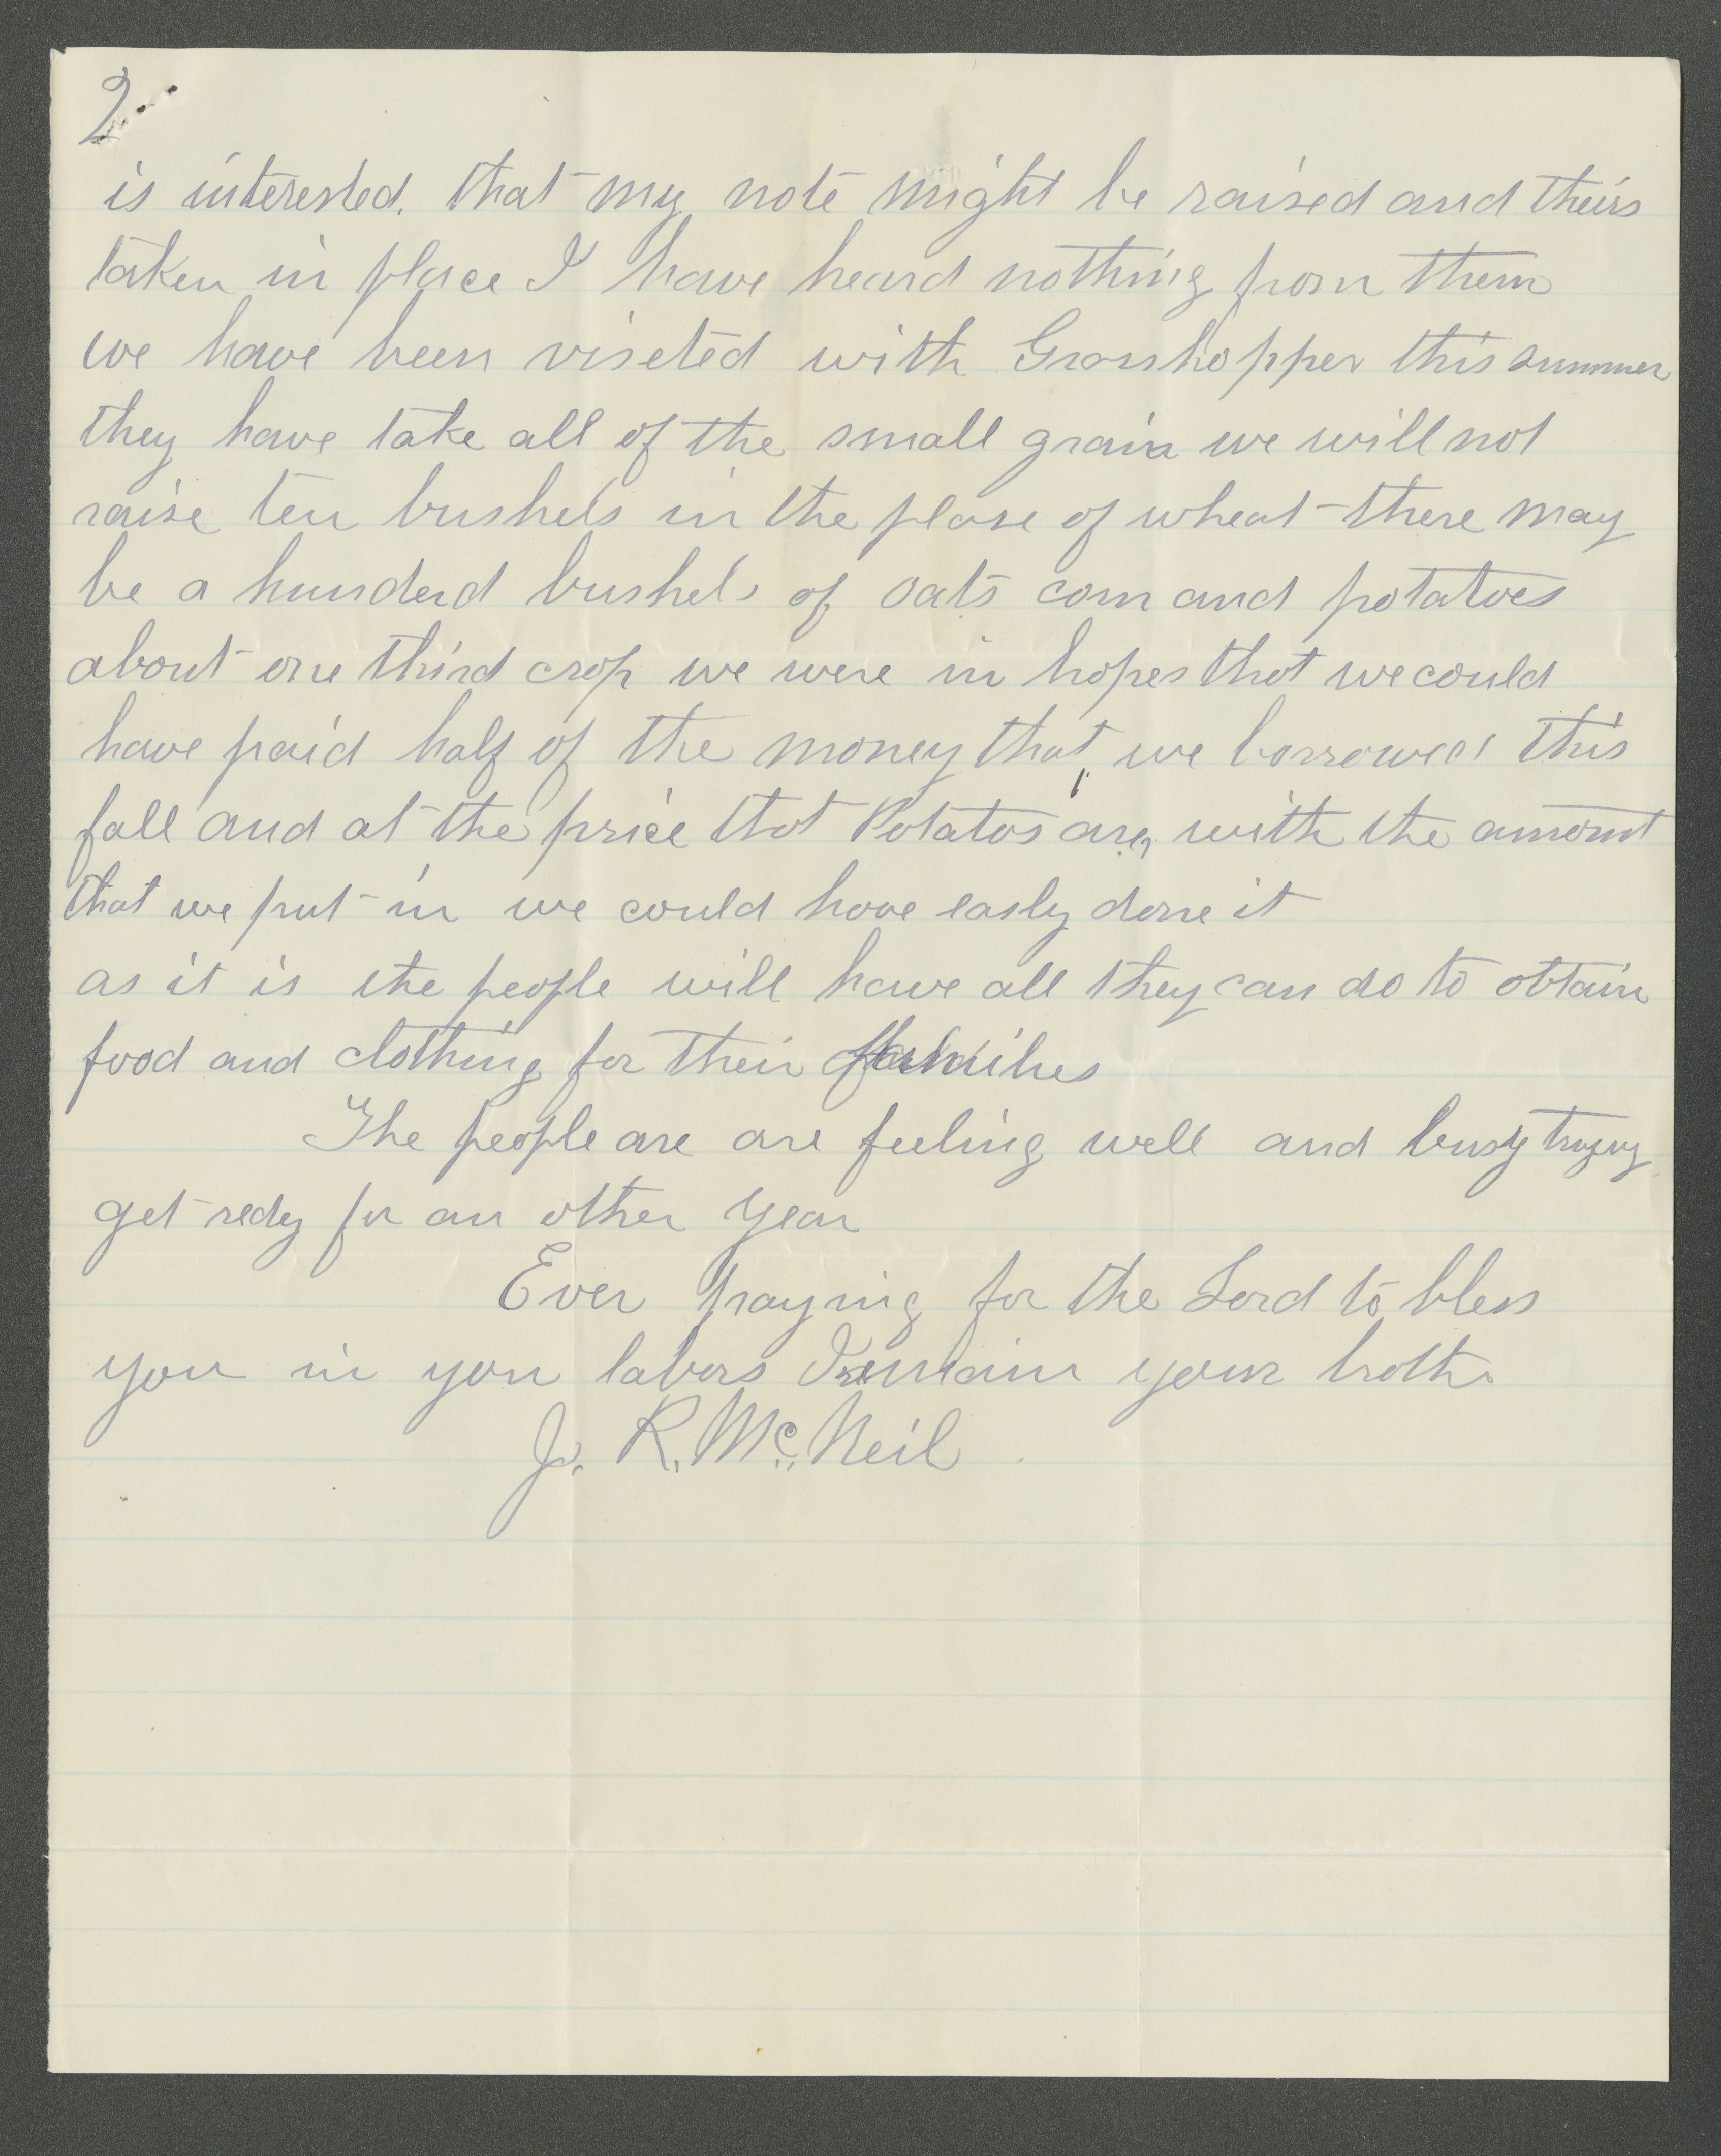 2
is interested. that my note might be raised and theirs
taken in place I have heard nothing from them
we have been viseted with Grasshopper this summer
they have take all of the small grain we will not
raise ten bushels in the plase of wheat there may
be a hunderd bushels of oats corn and potatoes
about one third crop we were in hopes that we could
have paid half of the money that we borrowed this
fall and at the price that Potatos are, with the amount
that we put in we could have easly done it
as it is the people will have all they can do to obtain
food and clothing for their families
The people are are feeling well and busy trying
get redy for an other year
Ever praying for the Lord to bless
you in you labors I remain your brother
J. R. McNeil